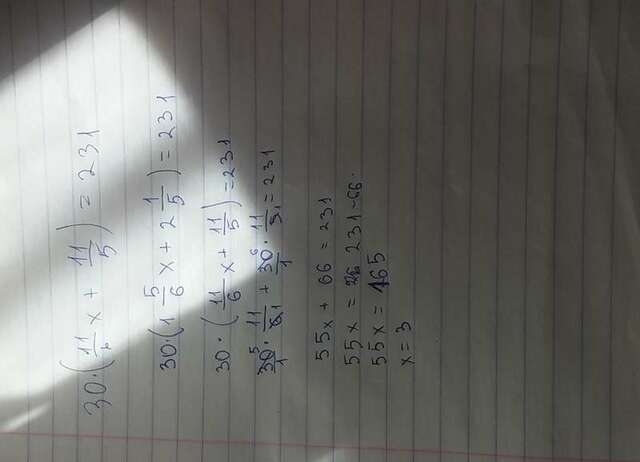 30·(11/6 x + 11/5) = 231
30·(1 5/6 x + 2 1/5) = 231
30 · (11/6 x + 11/5) = 231
30⁵/1 · 11/6₁ + 30⁶/1 · 11/5₁ = 231
55x + 66 = 231
55x = 231-66.
55x = 165
x = 3